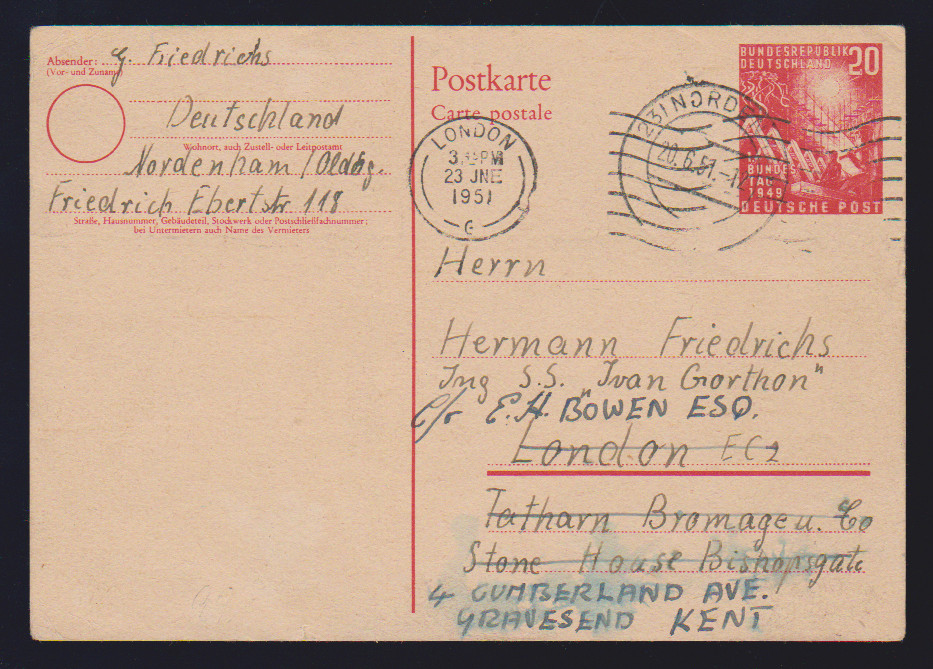 Absender: G. Friedrichs
(Vor- und Zuname)
Deutschland
Wohnort, auch Zustell- oder Leitpostamt
Nordenham/Oldbg.
Friedrich Ebertstr 118
Straße, Hausnummer, Gebäudeteil, Stockwerk oder Postschließfachnummer;
bei Untermietern auch Name des Vermieters
Postkarte
Carte postale
LONDON
PM
23 JNE
1951
G
(23) NORD
20.6.51
BUNDESREPUBLIK 20
DEUTSCHLAND
BUNDES
TAG
1949
DEUTSCHE POST
Herrn
Hermann Friedrichs
Ing S.S. "Ivan Gorthon"
C/o E.H. BOWEN ESQ.
London EC2
Tatharn Bromage u. Co
Stone House Bishopsgate
4 CUMBERLAND AVE.
GRAVESEND KENT